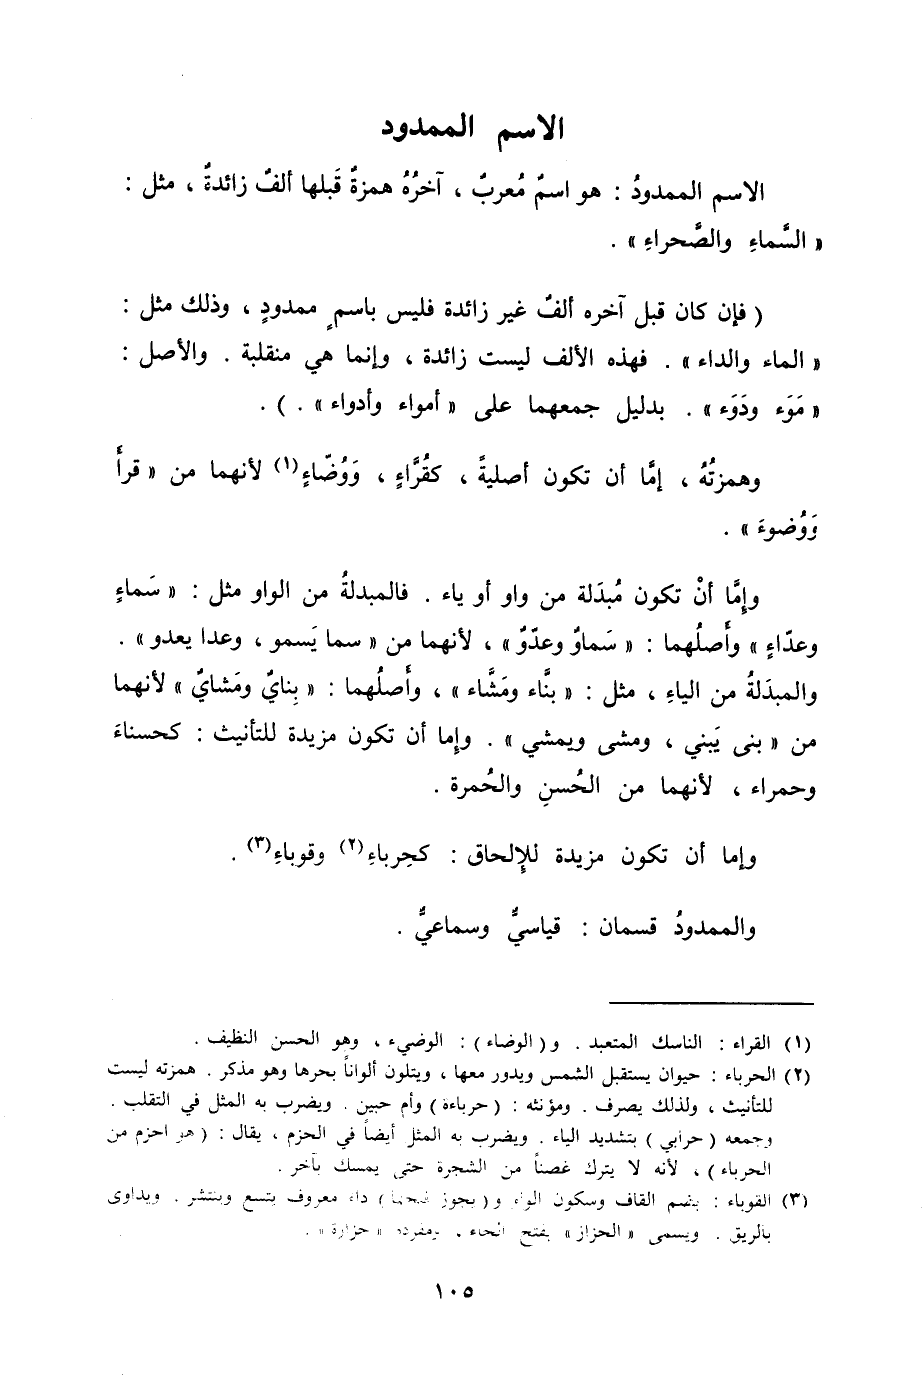 الاسم الممدود
الاسم الممدودُ : هو اسمٌ مُعربٌ ، آخرُهُ همزةٌ قَبلها ألفٌ زائدةٌ ، مثل :
« السَّماءِ والصَّحراءِ » .
( فإن كان قبل آخره ألفٌ غير زائدة فليس باسمٍ ممدودٍ ، وذلك مثل :
« الماء والداء » . فهذه الألف ليست زائدة ، وإنما هي منقلبة . والأصل :
« مَوَء ودَوَء » . بدليل جمعهما على « أمواء وأدواء » . ) .
وهمزتُهُ ، إمَّا أن تكون أصليةً ، كقُرَّاءٍ ، وَوُضّاءٍ(١) لأنهما من « قرأَ
وَوُضوءَ » .
وإمَّا أنْ تكون مُبدَلة من واو أو ياء . فالمبدلةُ من الواو مثل : « سَماءٍ
وعدّاءٍ » وأَصلُهما : « سَماوٌ وعدّوٌ » ، لأنهما من « سما يَسمو ، وعدا يعدو » .
والمبدَلةُ من الياءِ ، مثل : « بنَّاء ومَشَّاء » ، وأَصلُهما : « بِنايٌ ومَشايٌ » لأنهما
من « بنى يَبني ، ومشى ويمشي » . وإما أن تكون مزيدة للتأنيث : كحسناءَ
وحمراء ، لأنهما من الحُسنِ والحُمرة .
وإما أن تكون مزيدة للإلحاق : كحِرباءِ(٢) وقوباءِ(٣) .
والممدودُ قسمان : قياسيٌّ وسماعيٌّ .
(١) القراء : الناسك المتعبد . و( الوضاء ) : الوضيء ، وهو الحسن النظيف .
(٢) الحرباء : حيوان يستقبل الشمس ويدور معها ، ويتلون ألواناً بحرها وهو مذكر . همزته ليست
للتأنيث ، ولذلك يصرف . ومؤنثه : ( حرباءة ) وأم حبين . ويضرب به المثل في التقلب .
وجمعه ( حرابي ) بتشديد الياء . ويضرب به المثل أيضاً في الحزم ، يقال : ( هو احزم من
الحرباء ) ، لأنه لا يترك غصناً من الشجرة حتى يمسك بآخر .
(٣) القوباء : بضم القاف وسكون الواو و( يجوز فتحها ) داء معروف يتسع وينتشر . ويداوى
بالريق . ويسمى « الحزاز » بفتح الحاء . ومفرده « حزازة » .
١٠٥